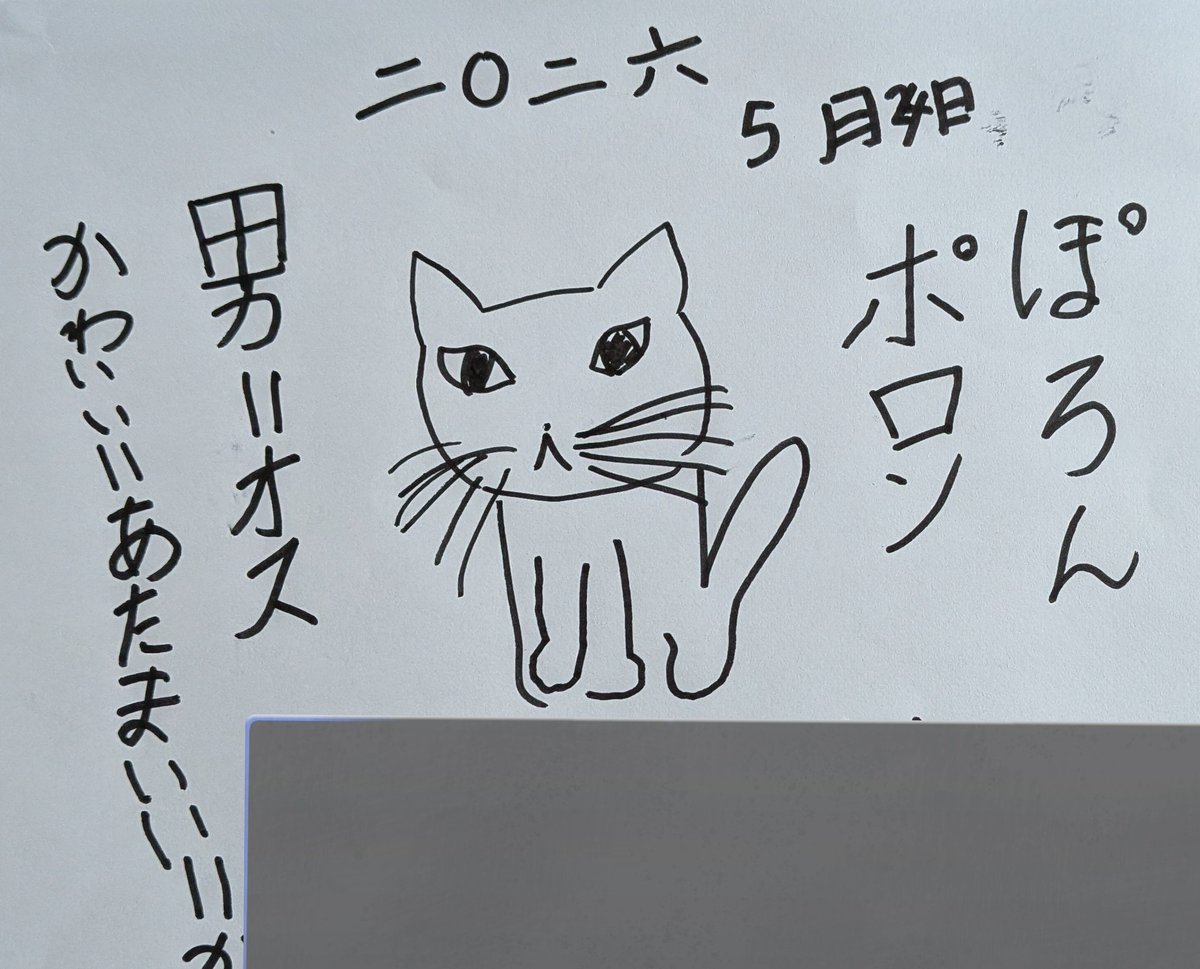 二〇二六
5月24日
ぽろん
ポロン
男=オス
かわいい=あたまいい=